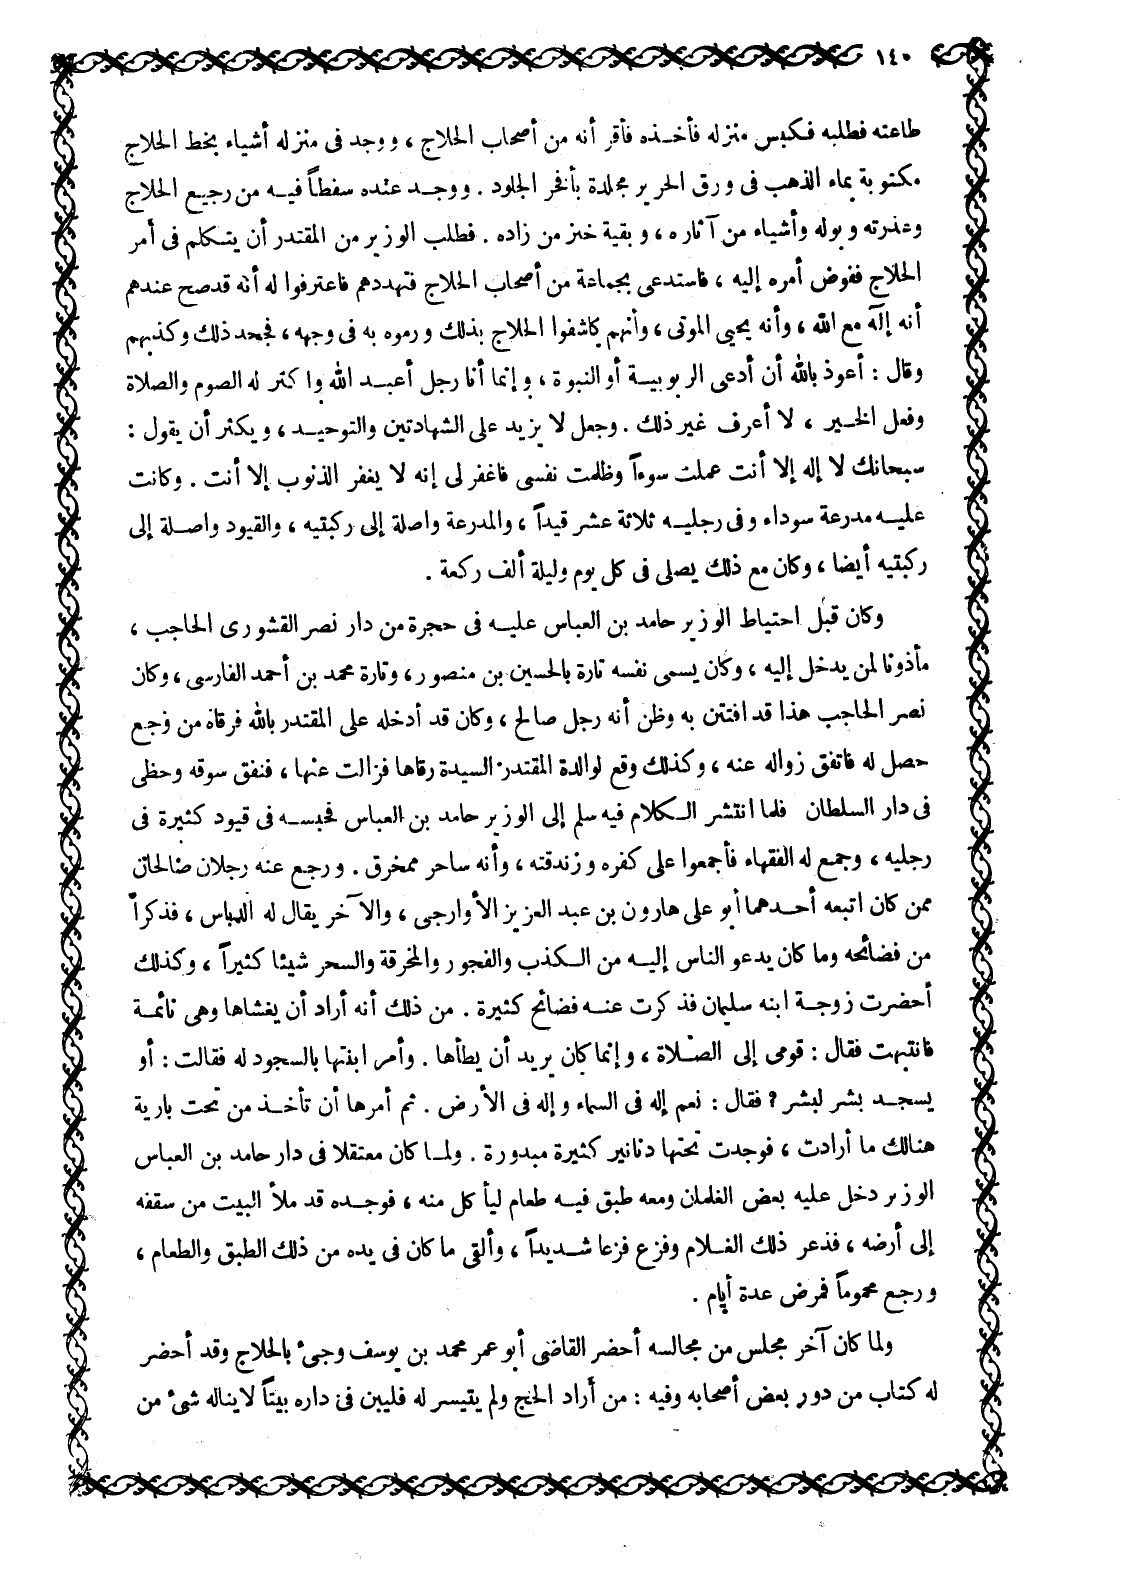 ١٤٠
طاعته فطلبه فكبس منزله فأخذه فأقر أنه من أصحاب الحلاج ، ووجد فى منزله أشياء بخط الحلاج
مكتوبة بماء الذهب فى ورق الحرير مجلدة بأفخر الجلود . ووجد عنده سفطاً فيه من رجيع الحلاج
وعذرته وبوله وأشياء من آثاره ، وبقية خبز من زاده . فطلب الوزير من المقتدر أن يتكلم فى أمر
الحلاج ففوض أمره إليه ، فاستدعى بجماعة من أصحاب الحلاج فتهددهم فاعترفوا له أنه قد صح عندهم
أنه إله مع الله ، وأنه يحيى الموتى ، وأنهم كاشفوا الحلاج بذلك ورموه به فى وجهه ، فجحد ذلك وكذبهم
وقال : أعوذ بالله أن أدعى الربوبية أو النبوة ، وإنما أنا رجل أعبد الله وأكثر له الصوم والصلاة
وفعل الخير ، لا أعرف غير ذلك . وجعل لا يزيد على الشهادتين والتوحيد ، ويكثر أن يقول :
سبحانك لا إله إلا أنت عملت سوءاً وظلمت نفسى فاغفر لى إنه لا يغفر الذنوب إلا أنت . وكانت
عليه مدرعة سوداء وفى رجليه ثلاثة عشر قيداً ، والمدرعة واصلة إلى ركبتيه ، والقيود واصلة إلى
ركبتيه أيضا ، وكان مع ذلك يصلى فى كل يوم وليلة ألف ركعة .
وكان قبل احتياط الوزير حامد بن العباس عليه فى حجرة من دار نصر القشورى الحاجب ،
مأذونا لمن يدخل إليه ، وكان يسمى نفسه تارة بالحسين بن منصور ، وتارة محمد بن أحمد الفارسى ، وكان
نصر الحاجب هذا قد افتتن به وظن أنه رجل صالح ، وكان قد أدخله على المقتدر بالله فرقاه من وجع
حصل له فاتفق زواله عنه ، وكذلك وقع لوالدة المقتدر السيدة رقاها فزالت عنها ، فنفق سوقه وحظى
فى دار السلطان فلما انتشر الكلام فيه سلم إلى الوزير حامد بن العباس فحبسه فى قيود كثيرة فى
رجليه ، وجمع له الفقهاء فأجمعوا على كفره وزندقته ، وأنه ساحر ممخرق . ورجع عنه رجلان صالحان
ممن كان اتبعه أحدهما أبو على هارون بن عبد العزيز الأوارجى ، والآخر يقال له الدباس ، فذكرا
من فضائحه وما كان يدعو الناس إليه من الكذب والفجور والمخرقة والسحر شيئا كثيراً ، وكذلك
أحضرت زوجة ابنه سليمان فذكرت عنه فضائح كثيرة . من ذلك أنه أراد أن يغشاها وهى نائمة
فانتبهت فقال : قومى إلى الصلاة ، وإنما كان يريد أن يطأها . وأمر ابنتها بالسجود له فقالت : أو
يسجد بشر لبشر ؟ فقال : نعم إله فى السماء وإله فى الأرض . ثم أمرها أن تأخذ من تحت بارية
هنالك ما أرادت ، فوجدت تحتها دنانير كثيرة مبدورة . ولما كان معتقلا فى دار حامد بن العباس
الوزير دخل عليه بعض الغلمان ومعه طبق فيه طعام ليأكل منه ، فوجده قد ملأ البيت من سقفه
إلى أرضه ، فذعر ذلك الغلام وفزع فزعا شديداً ، وألقى ما كان فى يده من ذلك الطبق والطعام ،
ورجع محموماً فمرض عدة أيام .
ولما كان آخر مجلس من مجالسه أحضر القاضى أبو عمر محمد بن يوسف وجئ بالحلاج وقد أحضر
له كتاب من دور بعض أصحابه وفيه : من أراد الحج ولم يتيسر له فليبن فى داره بيتاً لا يناله شئ من